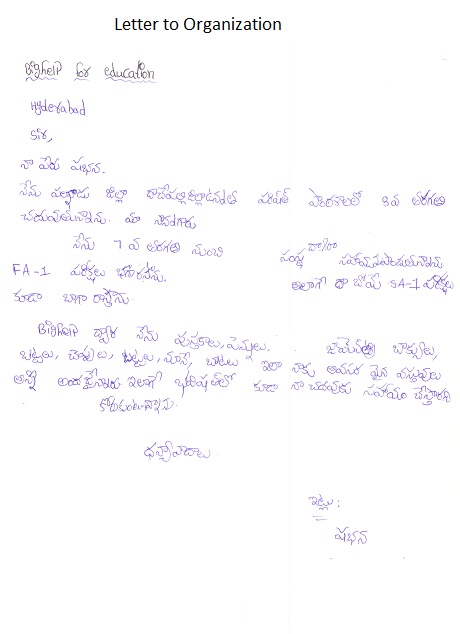 Letter to Organization
Bighelp for education
Hyderabad
Sir,
నా పేరు షభన.
నేను పల్నాడు జిల్లా దాచేపల్లి పరిషత్ పాఠశాలలో 8వ తరగతి
చదువుతున్నాను. మా
నేను 7 వ తరగతి నుంచి సంస్థ ద్వారా
FA-1 పరీక్షలు బాగా రాసాను. అలాగే SA-1 పరీక్షలు
కూడా బాగా రాస్తాను
Bighelp ద్వారా నేను పుస్తకాలు, పెన్నులు, బాక్సులు,
బట్టలు, చెప్పులు, ఇలా నాకు అవసర మైన వస్తువులు
అన్నీ ఇలాగే భవిష్యత్ లో కూడా నా చదువుకు సహాయం చేస్తారని
కోరుకుంటున్నాను.
ధన్యవాదాలు
ఇట్లు:
షభన